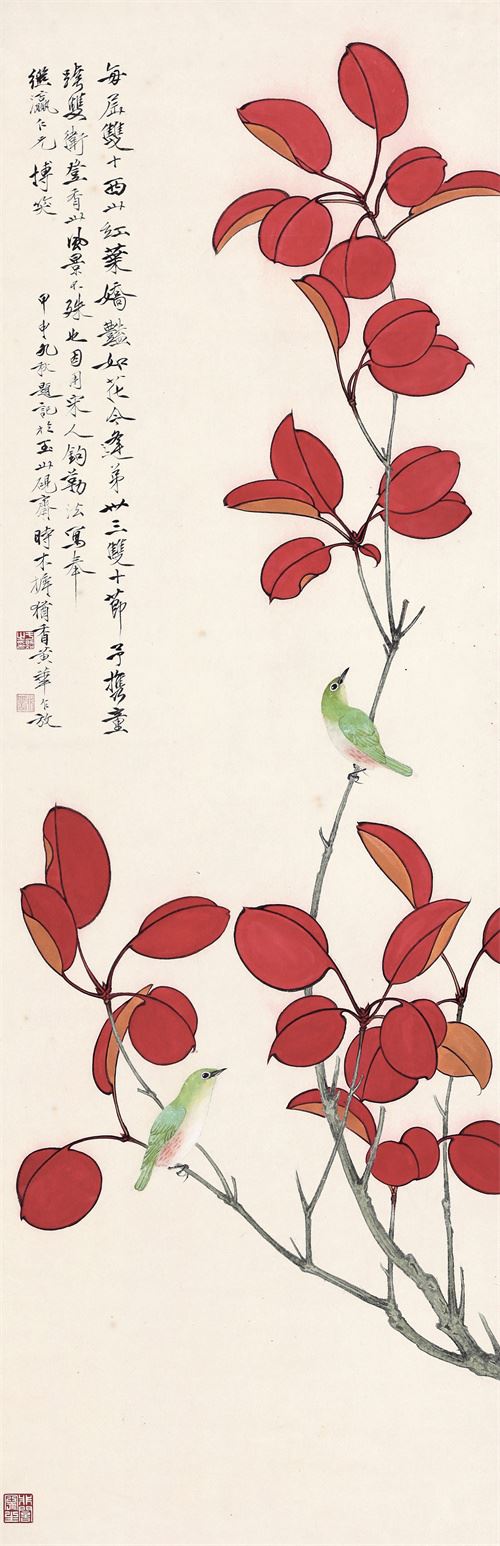 每屆雙十西山紅葉嬌豔如花今逢第卅三雙十節予攜童
跨雙衛登香山風景不殊也因用宋人鉤勒法寫奉
繼瀛仁兄搏笑
甲申九秋題記於玉山硯齋時木樨猶香黃華乍放